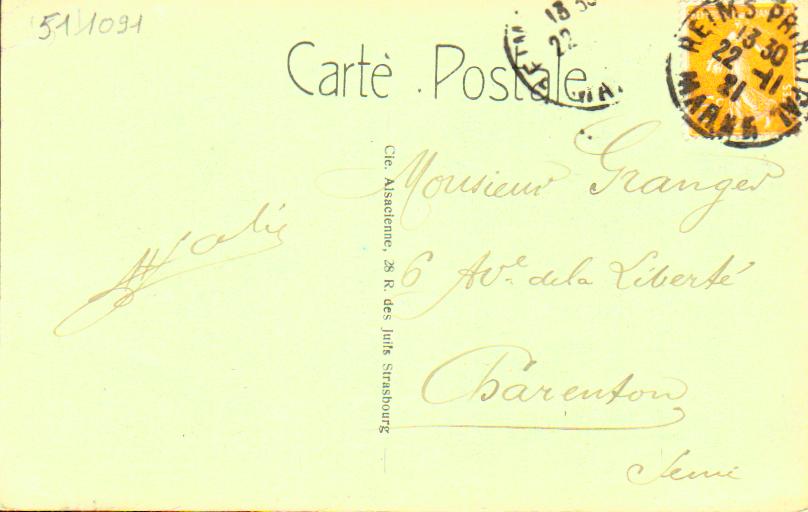 51/1091
Carte Postale
REIMS PRINCIPAL
13 30
22 -11
21
MARNE
13 30
22
Cie. Alsacienne, 28 R. des Juifs Strasbourg
Monsieur Granger
6 Ave. de la Liberté
Charenton
Seine